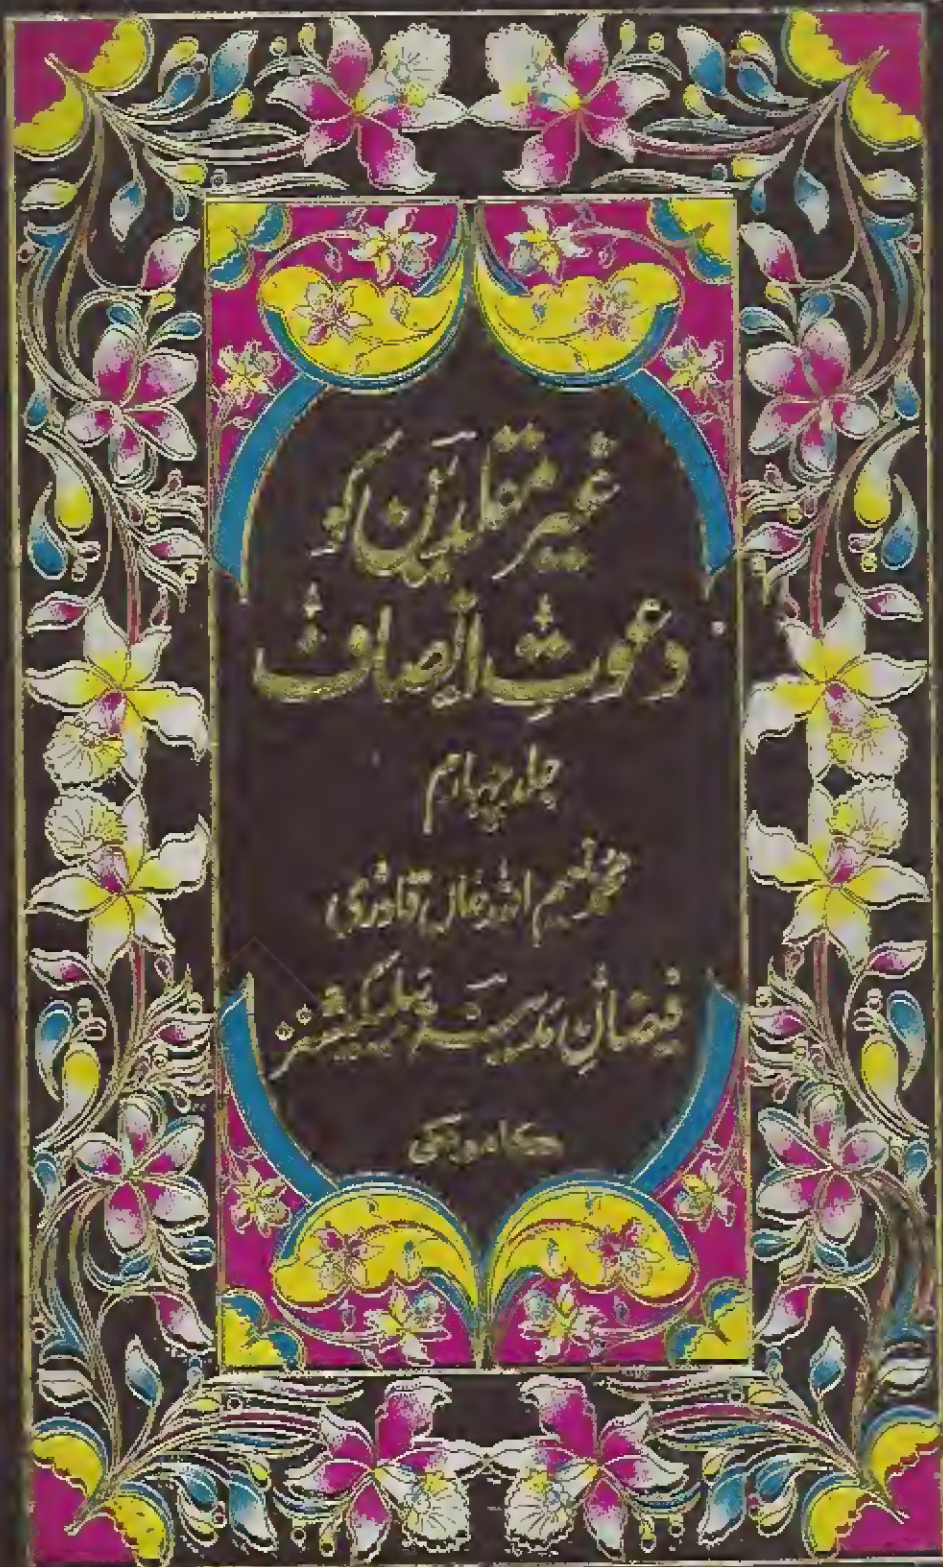 غیر مقلدین کو
دعوتِ انصاف
جلد چہارم
محمد نعیم اللہ خاں قادری
فیضانِ مدینہ پبلیکیشنز
کامونکی